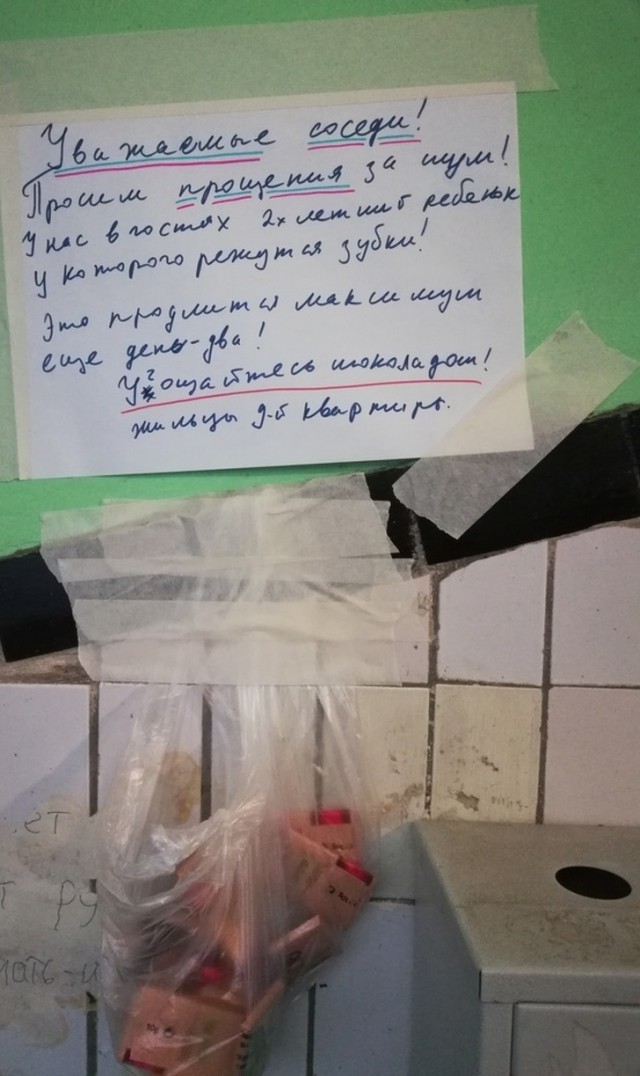 Уважаемые соседи!
Просим прощения за шум!
У нас в гостях 2х летний ребенок
у которого режутся зубки!
Это продлится максимум
еще день-два!
Угощайтесь шоколадом!
жильцы 9-й квартиры.
ет
т ру